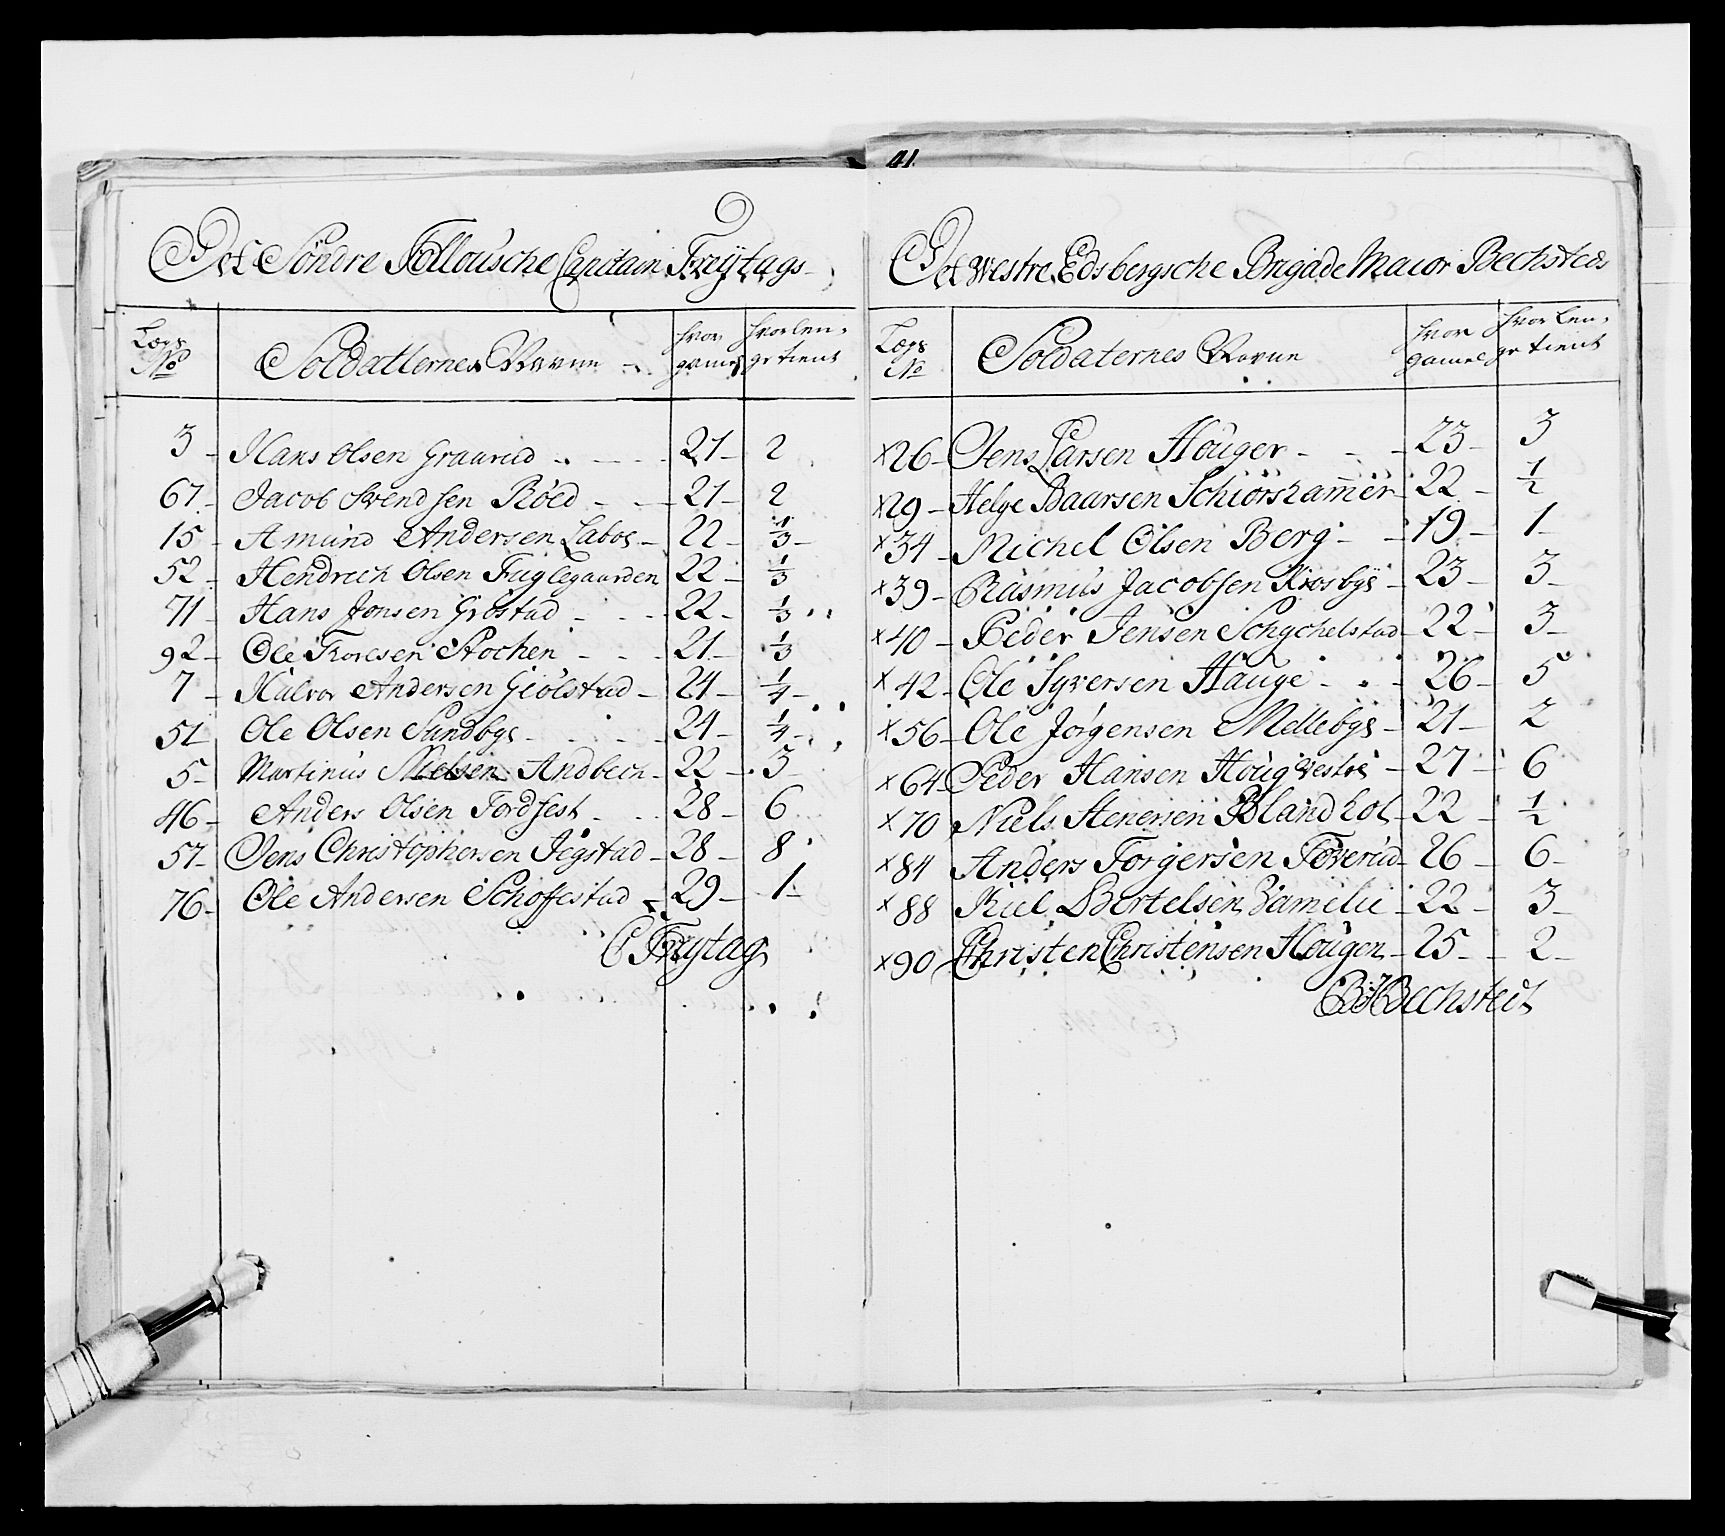 41.
Det Söndre Follousche Capitain Freÿtags
Lægs No Soldatternes Navne hvor gamel hvor len- ge tient
3 Hans Olsen Graarud 21 2
67 Jacob Svendsen Röed 21 2
15 Amund Andersen Laboe 22 1/3
52 Hendrich Olsen Fuglegaarden 22 1/3
71 Hans Jonsen Gröstad 22 1/3
92 Ole Thoresen Stochen 21 1/3
7 Halvor Andersen Giölstad 24 1/4
51 Ole Olsen Sundbye 24 1/4
5 Martinus Nielsen Andbech 22 3
46 Anders Olsen Tordfest 28 6
57 Jens Christophersen Jegstad 28 8
76 Ole Andersen Schoffestad 29 1
C Freytag
Det westre Edsbergsche Brigade Maior Bechsteds
Lægs No Soldaternes Navne hvor gamel hvor len- ge tient
x26 Jens Larsen Houger 23 3
x29 Helge Baarsen Schiörshammer 22 1/2
x34 Michel Olsen Berg 19 1
x39 Rasmus Jacobsen Krosbye 23 3
x40 Peder Jensen Schychelstad 22 3
x42 Ole Syversen Hauge 26 5
x56 Ole Jörgensen Mellebye 21 2
x64 Peder Hansen Houg westre 27 6
x70 Niels Stenersen Blandhol 22 1/2
x84 Anders Torgersen Töverud 26 6
x88 Kiel Bertelsen Familie 22 3
x90 Christen Christensen Hougen 25 2
Bechsted